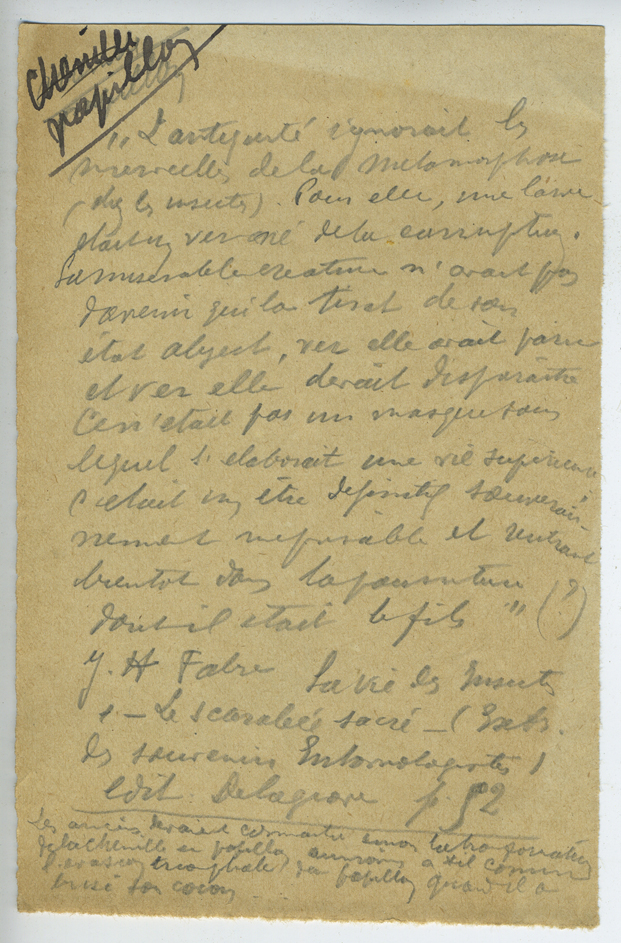 Chenille
papillon
"L'antiquité ignorait les
merveilles de la métamorphose
(chez les insectes). Pour elle, une larve
était un ver né de la corruption.
La misérable créature n'avait pas
d'avenir qui la tirat de son
état abject, ver elle avait paru
et ver elle devait disparaitre
Ce n'était pas un masque sous
lequel s'élaborait une vie supérieure
c'était un être définitif souverai-
nement méprisable et rentrant
bientot dans la pourriture
dont il était le fils" (?)
J. H Fabre La vie des Insectes
1 - Le scarabée sacré - (Extr.
des souvenirs Entomologistes)
edit Delagrave p. 52
Les anciens devaient connaitre sinon la transformation
de la chenille en papillon
du papillon quand il a
brisé son cocon